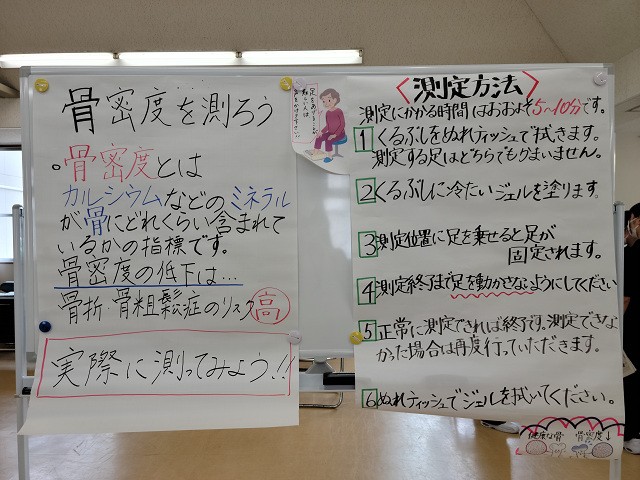 骨密度を測ろう
。骨密度とは
カルシウムなどのミネラル
が骨にどれくらい含まれて
いるかの指標です。
骨密度の低下は…
骨折・骨粗鬆症のリスク高
実際に測ってみよう!!
〈測定方法〉
測定にかかる時間はおおよそ5〜10分です。
1 くるぶしをぬれティッシュで拭きます。
測定する足はどちらでもかまいません。
2 くるぶしに冷たいジェルを塗ります。
3 測定位置に足を乗せると足が
固定されます。
4 測定終了まで足を動かさないようにしてください
5 正常に測定できれば終了です。測定できな
かった場合は再度行っていただきます。
6 ぬれティッシュでジェルを拭いてください。
健康な骨 骨密度↓